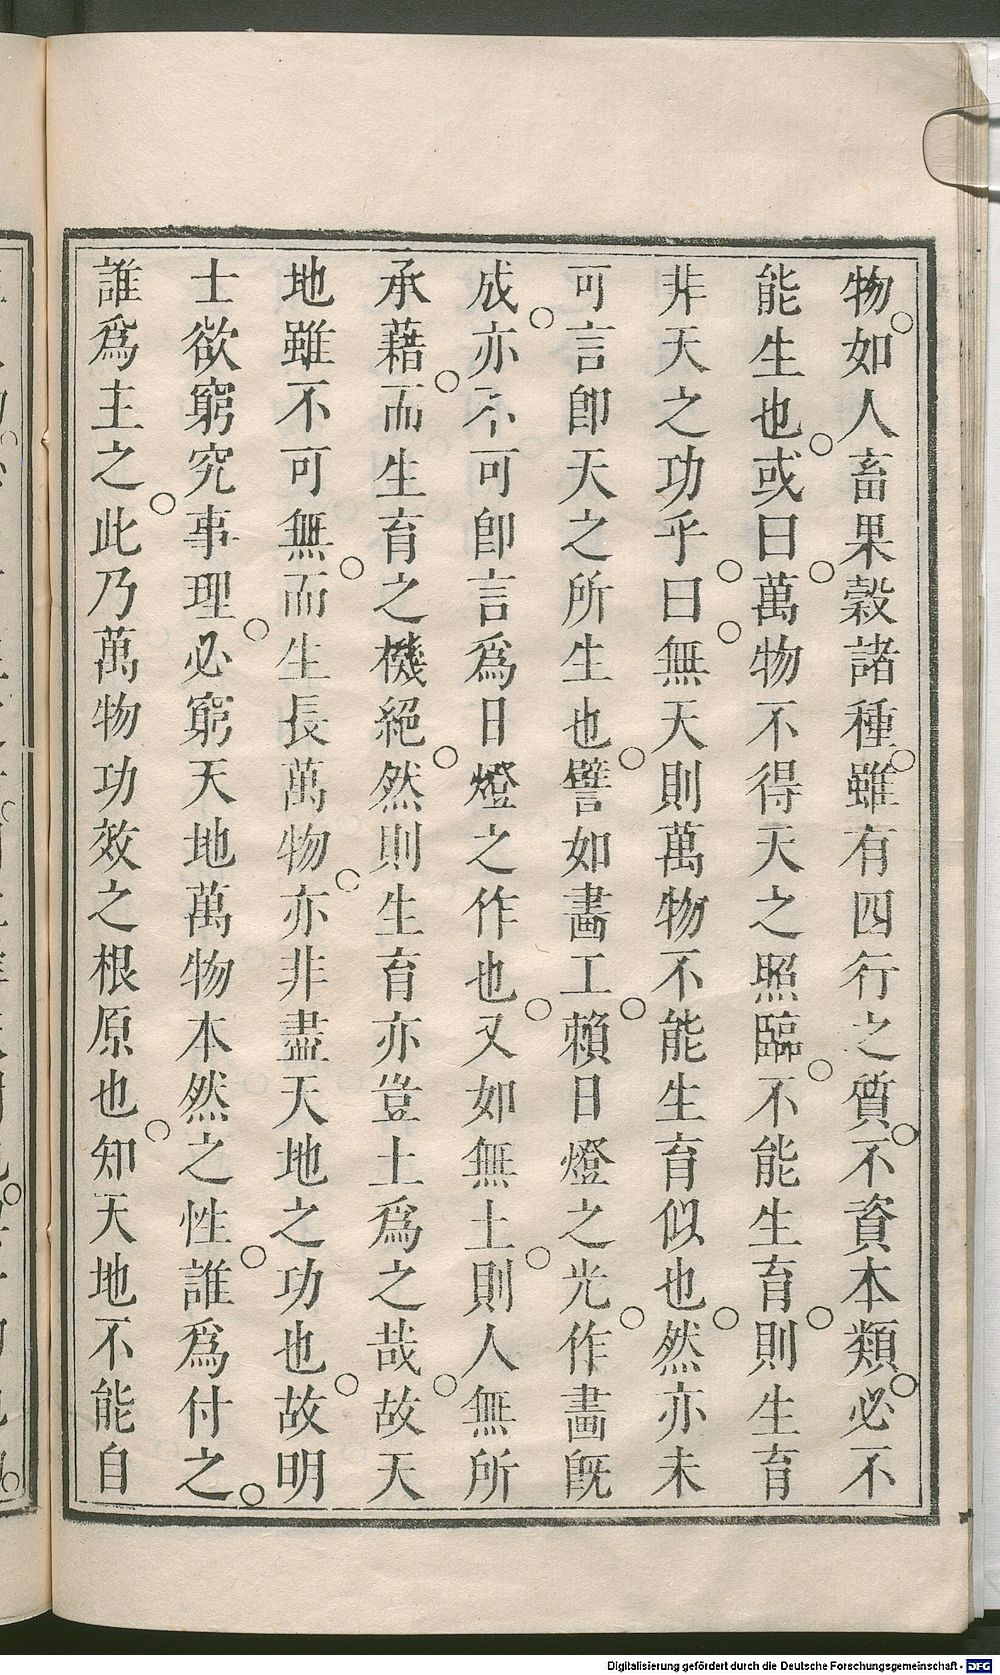 物。如人畜果穀諸種。雖有四行之質。不資本類。必不
能生也。或曰。萬物不得天之照臨。不能生育。則生育
非天之功乎。曰。無天則萬物不能生育似也。然亦未
可言卽天之所生也。譬如畵工。賴日燈之光。作畵旣
成。亦不可卽言爲日燈之作也。又如無土。則人無所
承藉。而生育之機絕。然則生育亦豈土爲之哉。故天
地雖不可無。而生長萬物。亦非盡天地之功也。故明
士欲窮究事理。必窮天地萬物本然之性。誰爲付之。
誰爲主之。此乃萬物功效之根原也。知天地不能自
Digitalisierung gefördert durch die Deutsche Forschungsgemeinschaft - DFG